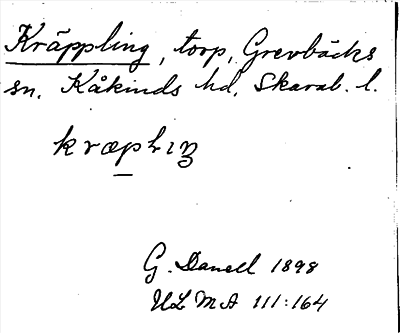 Kräppling, torp, Grevbäcks
sn. Kåkinds hd, Skarab. l.
kræplıŋ
G. Danell 1898
ULMA 111:164